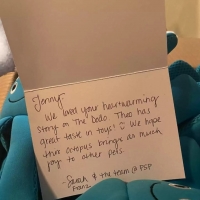 Jenny-
We loved your heartwarming
story on The Dodo. Theo has
great taste in toys! We hope
this octopus brings as much
joy to other pets.
Sarah & the team @ PSP
Franz